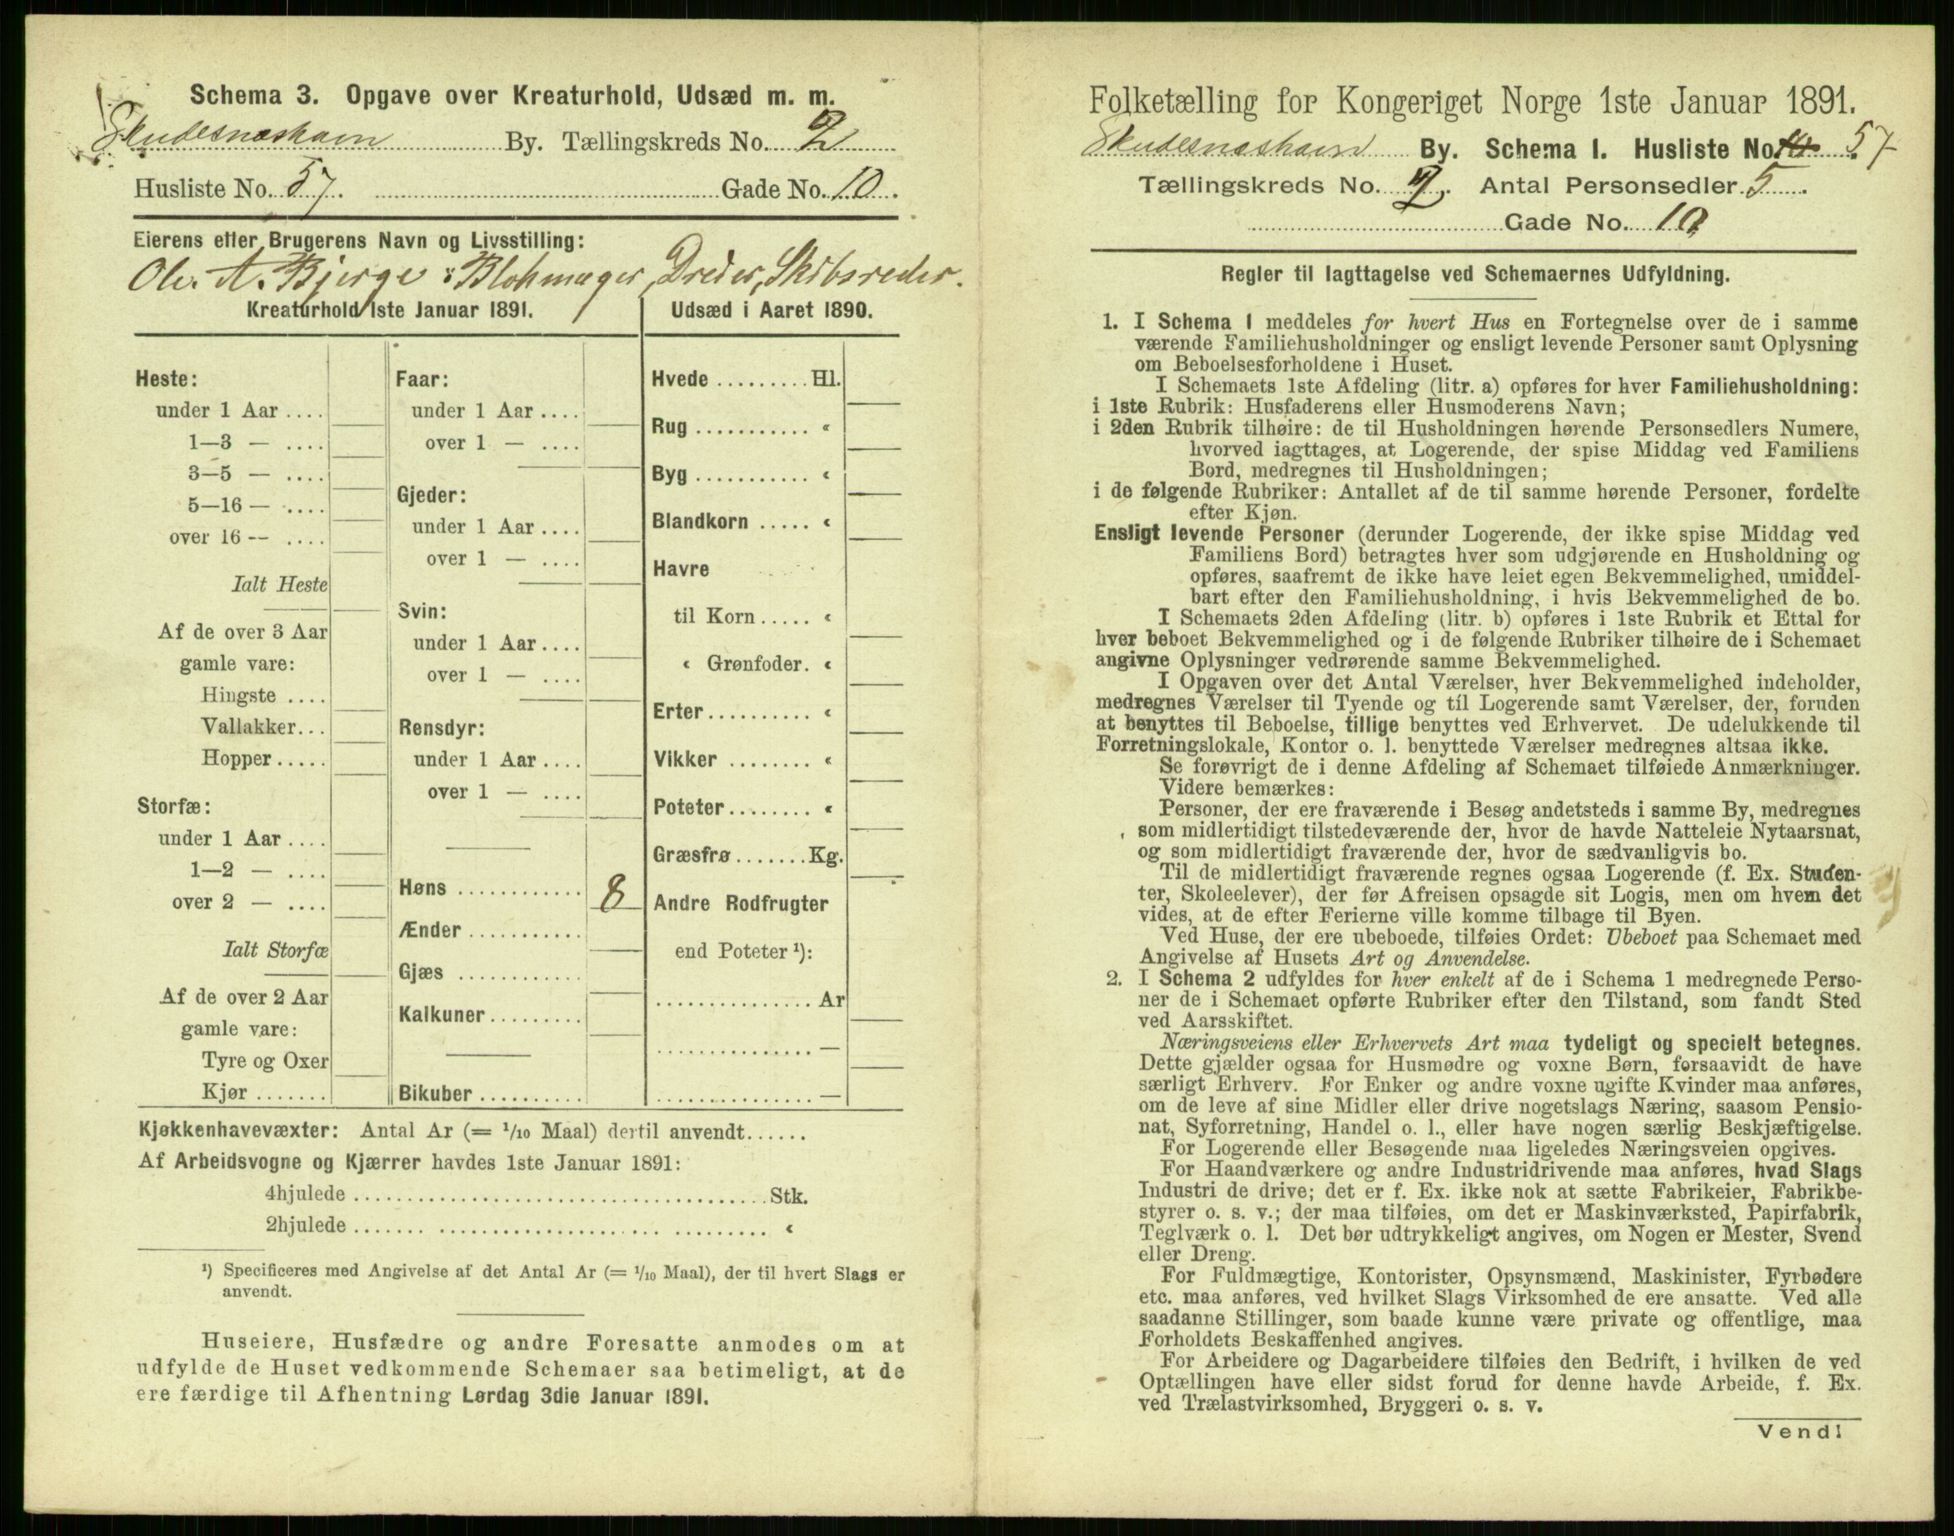 Schema 3. Opgave over Kreaturhold, Udsæd m. m.
Skudesnæshavn By. Tællingskreds No. 2
Husliste No. 57. Gade No. 10.
Eierens eller Brugerens Navn og Livsstilling:
Ole. A. Bjerge : Blokmager, Dreier, Skibsreder.
Kreaturhold 1ste Januar 1891.
Heste:
under 1 Aar ....
1—3 — ....
3—5 — ....
5—16 — ....
over 16 — ....
Ialt Heste
Af de over 3 Aar
gamle vare:
Hingste ....
Vallakker...
Hopper .....
Storfæ:
under 1 Aar ....
1—2 — ....
over 2 — ....
Ialt Storfæ
Af de over 2 Aar
gamle vare:
Tyre og Oxer
Kjør .......
Faar:
under 1 Aar ....
over 1 — ....
Gjeder:
under 1 Aar ....
over 1 — ....
Svin:
under 1 Aar ....
over 1 — ....
Rensdyr:
under 1 Aar ....
over 1 — ....
Høns ............ 8
Ænder ...........
Gjæs ............
Kalkuner.........
Bikuber ..........
Udsæd i Aaret 1890.
Hvede ......... Hl.
Rug ........... «
Byg ........... «
Blandkorn ..... «
Havre
til Korn ..... «
« Grønfoder. «
Erter.......... «
Vikker ........ «
Poteter........ «
Græsfrø .......Kg.
Andre Rodfrugter
end Poteter ¹):
............... Ar
............... —
............... —
Kjøkkenhavevæxter: Antal Ar (= 1/10 Maal) dertil anvendt......
Af Arbeidsvogne og Kjærrer havdes 1ste Januar 1891:
4hjulede ........................................ Stk.
2hjulede ........................................ «
¹) Specificeres med Angivelse af det Antal Ar (= 1/10 Maal), der til hvert Slags er
anvendt.
Huseiere, Husfædre og andre Foresatte anmodes om at
udfylde de Huset vedkommende Schemaer saa betimeligt, at de
ere færdige til Afhentning Lørdag 3die Januar 1891.
Folketælling for Kongeriget Norge 1ste Januar 1891.
Skudesnæshavn By. Schema I. Husliste No. 57
Tællingskreds No. 2. Antal Personsedler 5.
Gade No. 10
Regler til Iagttagelse ved Schemaernes Udfyldning.
1. I Schema I meddeles for hvert Hus en Fortegnelse over de i samme
værende Familiehusholdninger og ensligt levende Personer samt Oplysning
om Beboelsesforholdene i Huset.
I Schemaets 1ste Afdeling (litr. a) opføres for hver Familiehusholdning:
i 1ste Rubrik: Husfaderens eller Husmoderens Navn;
i 2den Rubrik tilhøire: de til Husholdningen hørende Personsedlers Numere,
hvorved iagttages, at Logerende, der spise Middag ved Familiens
Bord, medregnes til Husholdningen;
i de følgende Rubriker: Antallet af de til samme hørende Personer, fordelte
efter Kjøn.
Ensligt levende Personer (derunder Logerende, der ikke spise Middag ved
Familiens Bord) betragtes hver som udgjørende en Husholdning og
opføres, saafremt de ikke have leiet egen Bekvemmelighed, umiddel-
bart efter den Familiehusholdning, i hvis Bekvemmelighed de bo.
I Schemaets 2den Afdeling (litr. b) opføres i 1ste Rubrik et Ettal for
hver beboet Bekvemmelighed og i de følgende Rubriker tilhøire de i Schemaet
angivne Oplysninger vedrørende samme Bekvemmelighed.
I Opgaven over det Antal Værelser, hver Bekvemmelighed indeholder,
medregnes Værelser til Tyende og til Logerende samt Værelser, der, foruden
at benyttes til Beboelse, tillige benyttes ved Erhvervet. De udelukkende til
Forretningslokale, Kontor o. l. benyttede Værelser medregnes altsaa ikke.
Se forøvrigt de i denne Afdeling af Schemaet tilføiede Anmærkninger.
Videre bemærkes:
Personer, der ere fraværende i Besøg andetsteds i samme By, medregnes
som midlertidigt tilstedeværende der, hvor de havde Natteleie Nytaarsnat,
og som midlertidigt fraværende der, hvor de sædvanligvis bo.
Til de midlertidigt fraværende regnes ogsaa Logerende (f. Ex. Studen-
ter, Skoleelever), der før Afreisen opsagde sit Logis, men om hvem det
vides, at de efter Ferierne ville komme tilbage til Byen.
Ved Huse, der ere ubeboede, tilføies Ordet: Ubeboet paa Schemaet med
Angivelse af Husets Art og Anvendelse.
2. I Schema 2 udfyldes for hver enkelt af de i Schema 1 medregnede Perso-
ner de i Schemaet opførte Rubriker efter den Tilstand, som fandt Sted
ved Aarsskiftet.
Næringsveiens eller Erhvervets Art maa tydeligt og specielt betegnes.
Dette gjælder ogsaa for Husmødre og voxne Børn, forsaavidt de have
særligt Erhverv. For Enker og andre voxne ugifte Kvinder maa anføres,
om de leve af sine Midler eller drive nogetslags Næring, saasom Pensio-
nat, Syforretning, Handel o. l., eller have nogen særlig Beskjæftigelse.
For Logerende eller Besøgende maa ligeledes Næringsveien opgives.
For Haandværkere og andre Industridrivende maa anføres, hvad Slags
Industri de drive; det er f. Ex. ikke nok at sætte Fabrikeier, Fabrikbe-
styrer o. s. v.; der maa tilføies, om det er Maskinværksted, Papirfabrik,
Teglværk o. l. Det bør udtrykkeligt angives, om Nogen er Mester, Svend
eller Dreng.
For Fuldmægtige, Kontorister, Opsynsmænd, Maskinister, Fyrbødere
etc. maa anføres, ved hvilket Slags Virksomhed de ere ansatte. Ved alle
saadanne Stillinger, som baade kunne være private og offentlige, maa
Forholdets Beskaffenhed angives.
For Arbeidere og Dagarbeidere tilføies den Bedrift, i hvilken de ved
Optællingen have eller sidst forud for denne havde Arbeide, f. Ex.
ved Trælastvirksomhed, Bryggeri o. s. v.
Vend!